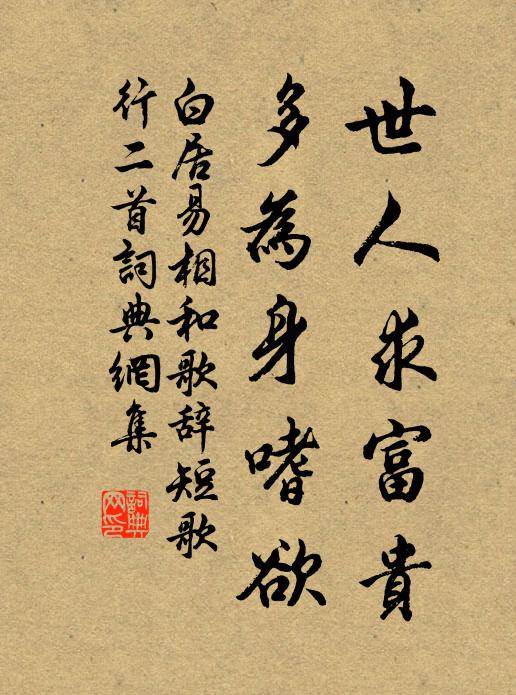 世人求富貴
多為身嗜欲
白居易相和歌辞短歌
行二首詞典網集
詞典
网印